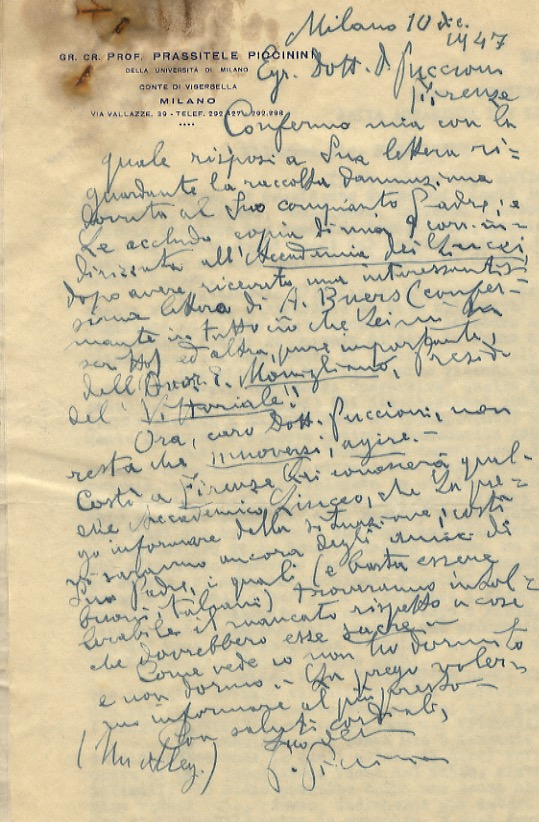 Milano 10 dic.
1947
GR. CR. PROF. PRASSITELE PICCININI
DELLA UNIVERSITÀ DI MILANO
CONTE DI VIGERBELLA
MILANO
VIA VALLAZZE, 39 - TELEF. 292.427 - 292.298
Egr. Dott. Puccioni
Firenze
Confermo mia con la
quale risposi a Sua lettera ri=
guardante la raccolta dannunziana
dovuta al Suo compianto Padre, e
Le accludo copia di mia in=
dirizzata all'Accademia dei Lincei,
dopo avere ricevuto una interessantis=
sima lettera di A. Bruers (confer=
mante in tutto ciò che Lei mi ha
scritto) ed altra, pure importante,
dell' E. Momigliano, Presid
del "Vittoriale"!
Ora, caro Dott. Puccioni, non
resta che muoversi, agire. -
Costì a Firenze Lei conoscerà qual=
che Accademico Linceo, che La pre=
go informare della situazione; costì
vi saranno ancora degli amici di
Suo Padre, i quali (e basta essere
buoni italiani) troveranno insol=
il mancato rispetto a cose
che dovrebbero esse sacre -
Come vede io non ho dormito
e non dormo. - La prego voler
informare al più presto -
Con saluti cordiali,
Suo
P. Piccinini